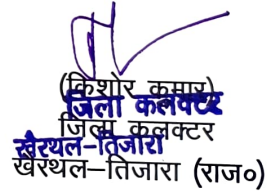 (किशोर कुमार)
जिला कलक्टर
जिला कलक्टर
खैरथल-तिजारा
खैरथल-तिजारा (राज०)